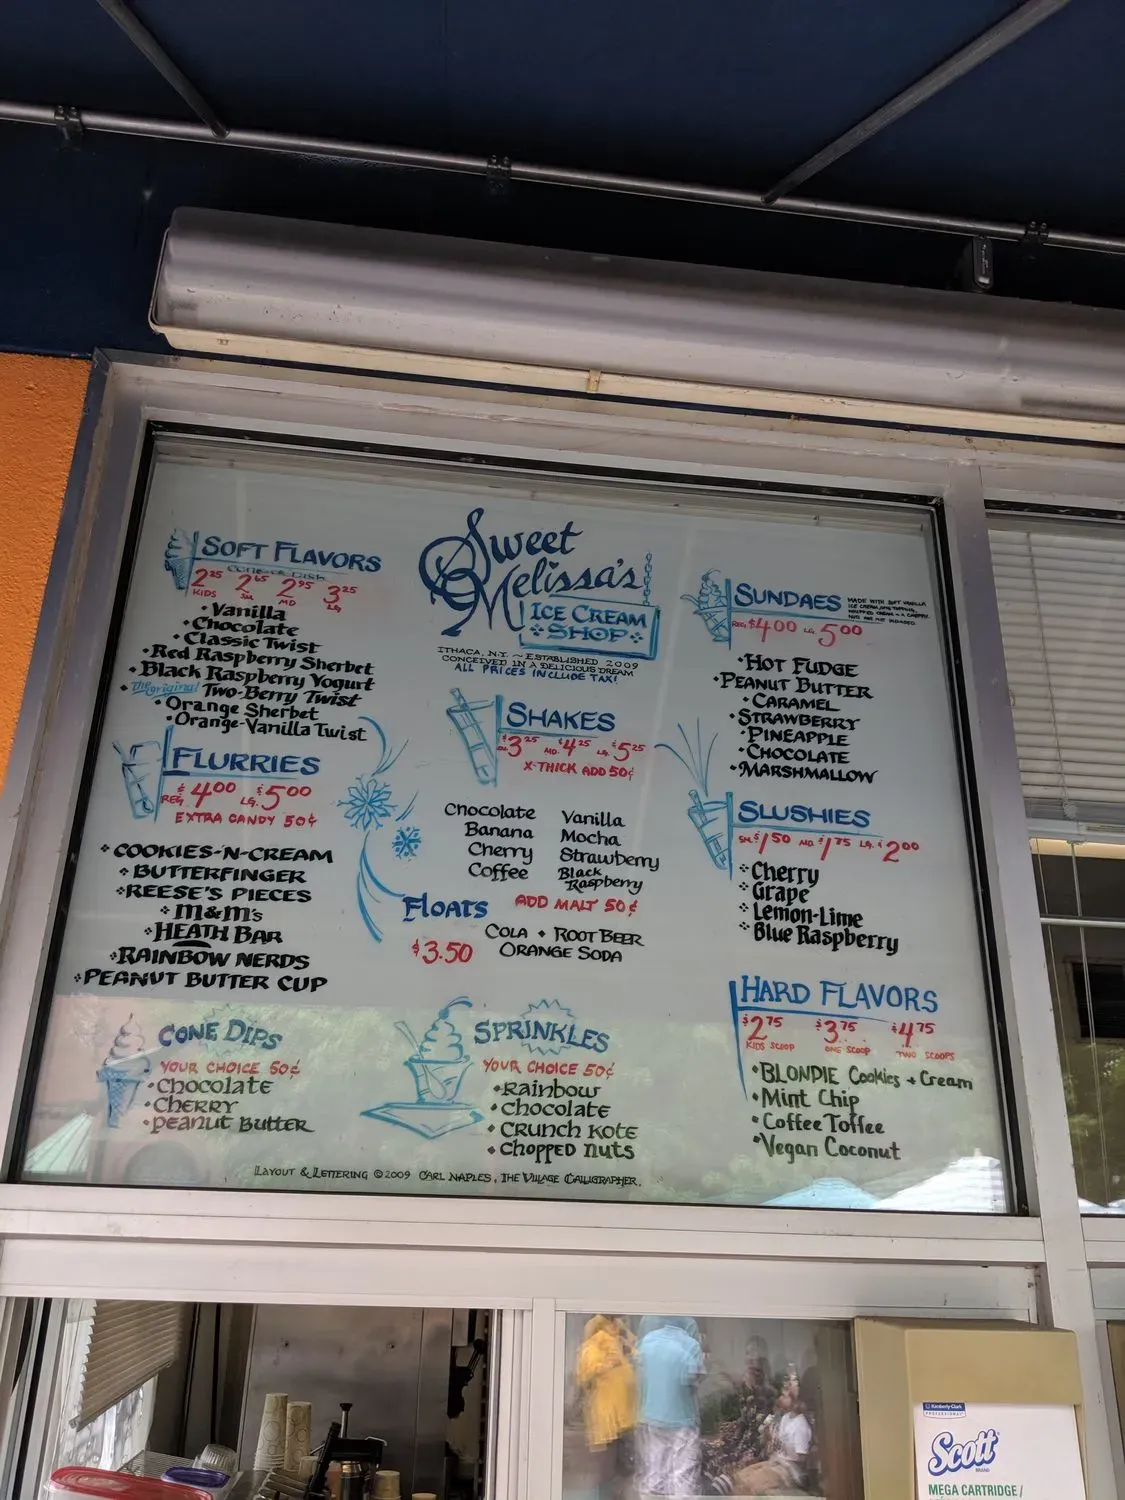 Sweet
Melissa's
ICE CREAM
SHOP
ITHACA, N.Y. ~ ESTABLISHED 2009
CONCEIVED IN A DELICIOUS DREAM
ALL PRICES INCLUDE TAX!
SOFT FLAVORS
CONE OR DISH
2.25 2.65 2.95 3.25
KIDS SM MD LG
• Vanilla
• Chocolate
• Classic Twist
• Red Raspberry Sherbet
• Black Raspberry Yogurt
• The original Two-Berry Twist
• Orange Sherbet
• Orange-Vanilla Twist
FLURRIES
REG. $4.00 LG. $5.00
EXTRA CANDY 50¢
COOKIES-N-CREAM
BUTTERFINGER
REESE'S PIECES
M&M's
HEATH BAR
RAINBOW NERDS
PEANUT BUTTER CUP
CONE DIPS
YOUR CHOICE 50¢
• Chocolate
• CHERRY
• Peanut Butter
SHAKES
SM. $3.25 MD. $4.25 LG. $5.25
X-THICK ADD 50¢
Chocolate
Banana
Cherry
Coffee
Vanilla
Mocha
Strawberry
Black
Raspberry
ADD MALT 50¢
FLOATS
$3.50
COLA • ROOT BEER
ORANGE SODA
SPRINKLES
YOUR CHOICE 50¢
• Rainbow
• Chocolate
• CRUNCH KOTE
• CHOPPED NUTS
SUNDAES
MADE WITH SOFT VANILLA
ICE CREAM, TOPPING,
WHIPPED CREAM & A CHERRY.
NUTS NOT INCLUDED.
REG. $4.00 LG. 5.00
HOT FUDGE
PEANUT BUTTER
CARAMEL
STRAWBERRY
PINEAPPLE
CHOCOLATE
MARSHMALLOW
SLUSHIES
SM. $1.50 MD. $1.75 LG. $2.00
Cherry
Grape
Lemon-Lime
Blue Raspberry
HARD FLAVORS
$2.75 $3.75 $4.75
KIDS SCOOP ONE SCOOP TWO SCOOPS
• BLONDIE Cookies + Cream
• Mint Chip
• Coffee Toffee
• Vegan Coconut
LAYOUT & LETTERING © 2009 CARL NAPLES, THE VILLAGE CALLIGRAPHER.
Kimberly-Clark
PROFESSIONAL
Scott
BRAND
MEGA CARTRIDGE /